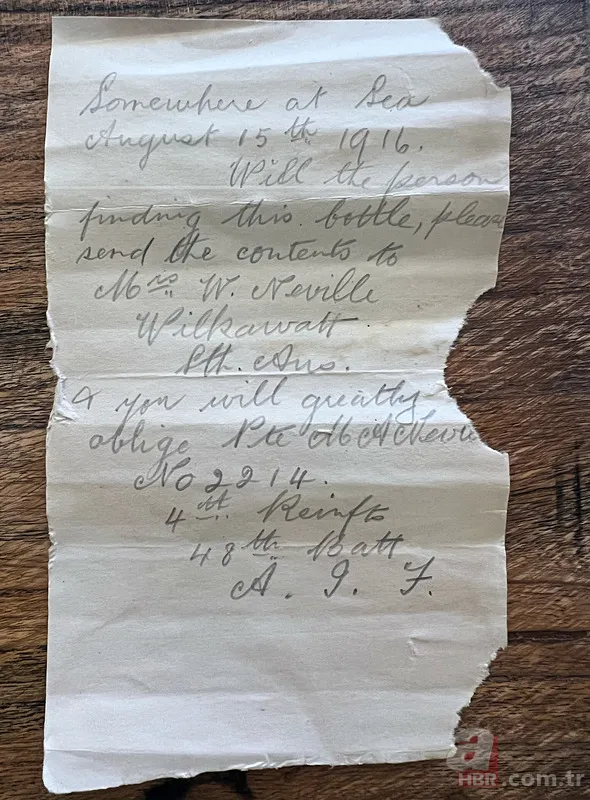 Somewhere at Sea
August 15th 1916.
Will the person
finding this bottle, please
send the contents to
Mrs W. Neville
Wilkawatt
Sth. Aus.
& you will greatly
oblige Pte M A Nevi
No 2214.
4th Reinfts
48th Batt
A. I. F.
a
HBR.com.tr